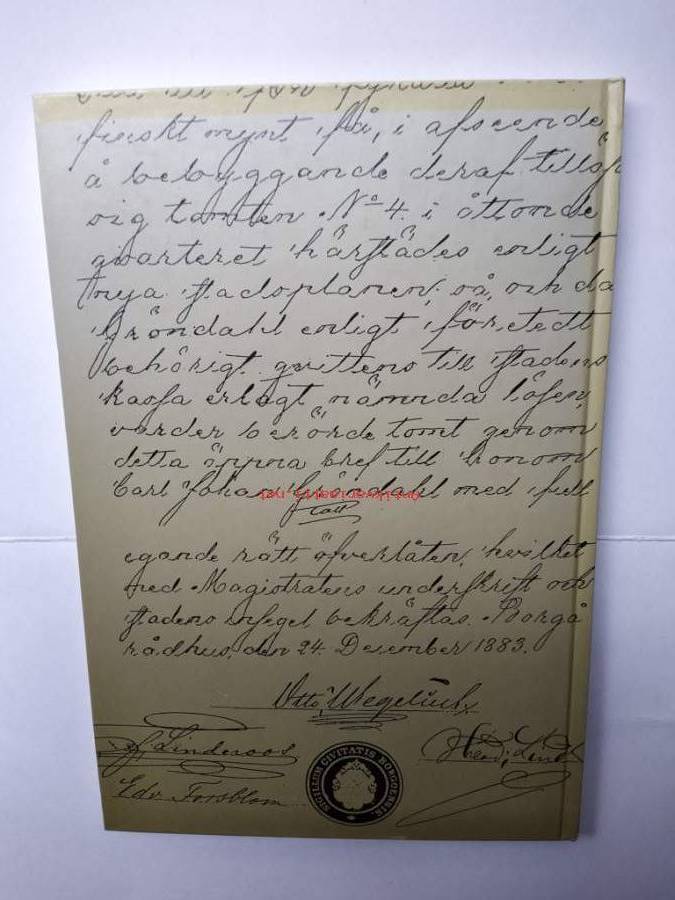 finskt mynt få, i afseende
å bebyggande deraf tillöp
sig tomten No 4 i åttonde
qvarteret härstädes enligt
nya stadsplanen, och da
Gröndahl enligt företedt
behörigt qvittens till stadens
kassa erlagt nämnda lösen,
varder berörde tomt genom
detta öppna bref till honom
Carl Johan Gröndahl med full
egande rätt öfverlåten, hvilket
med Magistratens underskrift och
stadens insegel bekräftas. Borgå
rådhus, den 24 December 1883.
Otto Wegelius
Linderoos
Theod. Lind
Edv Forsblom
SIGILLUM CIVITATIS BORGOENSIS